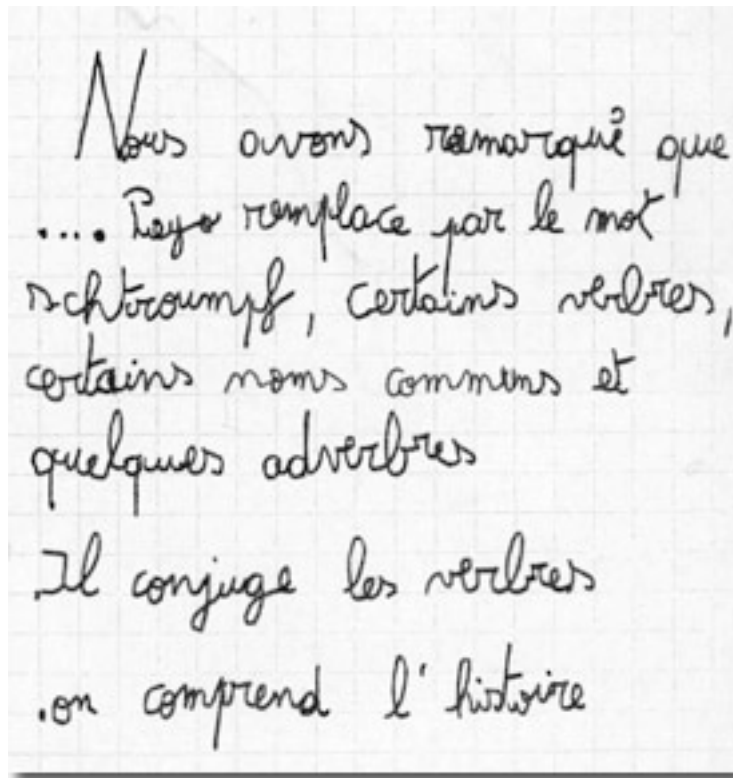 Nous avons remarqué que
.... Peyo remplace par le mot
schtroumpf, certains verbres,
certains noms communs et
quelques adverbres
.Il conjuge les verbres
.on comprend l'histoire